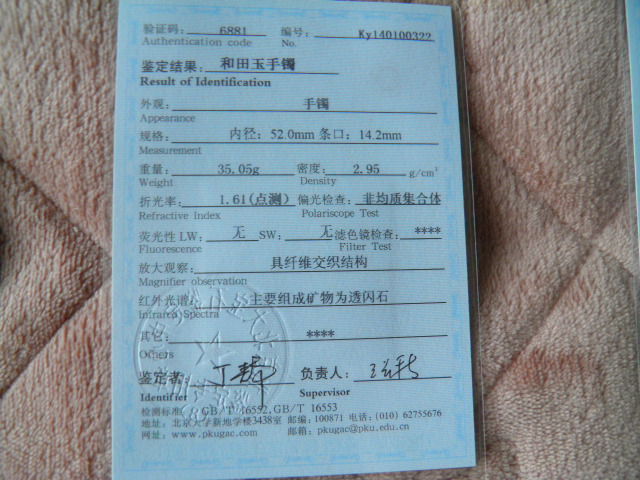 验证码： 6881 编号： Ky140100322
Authentication code No.
鉴定结果： 和田玉手镯
Result of Identification
外观： 手镯
Appearance
规格： 内径：52.0mm 条口：14.2mm
Measurement
重量： 35.05g 密度： 2.95 g/cm³
Weight Density
折光率： 1.61(点测) 偏光检查： 非均质集合体
Refractive Index Polariscope Test
荧光性 LW： 无 SW： 无 滤色镜检查： ****
Fluorescence Filter Test
放大观察： 具纤维交织结构
Magnifier observation
红外光谱： 主要组成矿物为透闪石
Infrared Spectra
其它： ****
Others
鉴定者： 负责人：
Identifier Supervisor
检测标准： GB/T 16552,GB/T 16553
地址：北京大学新地学楼3438室 邮编：100871 电话：(010) 62755676
网址：www.pkugac.com 邮箱：pkugac@pku.edu.cn